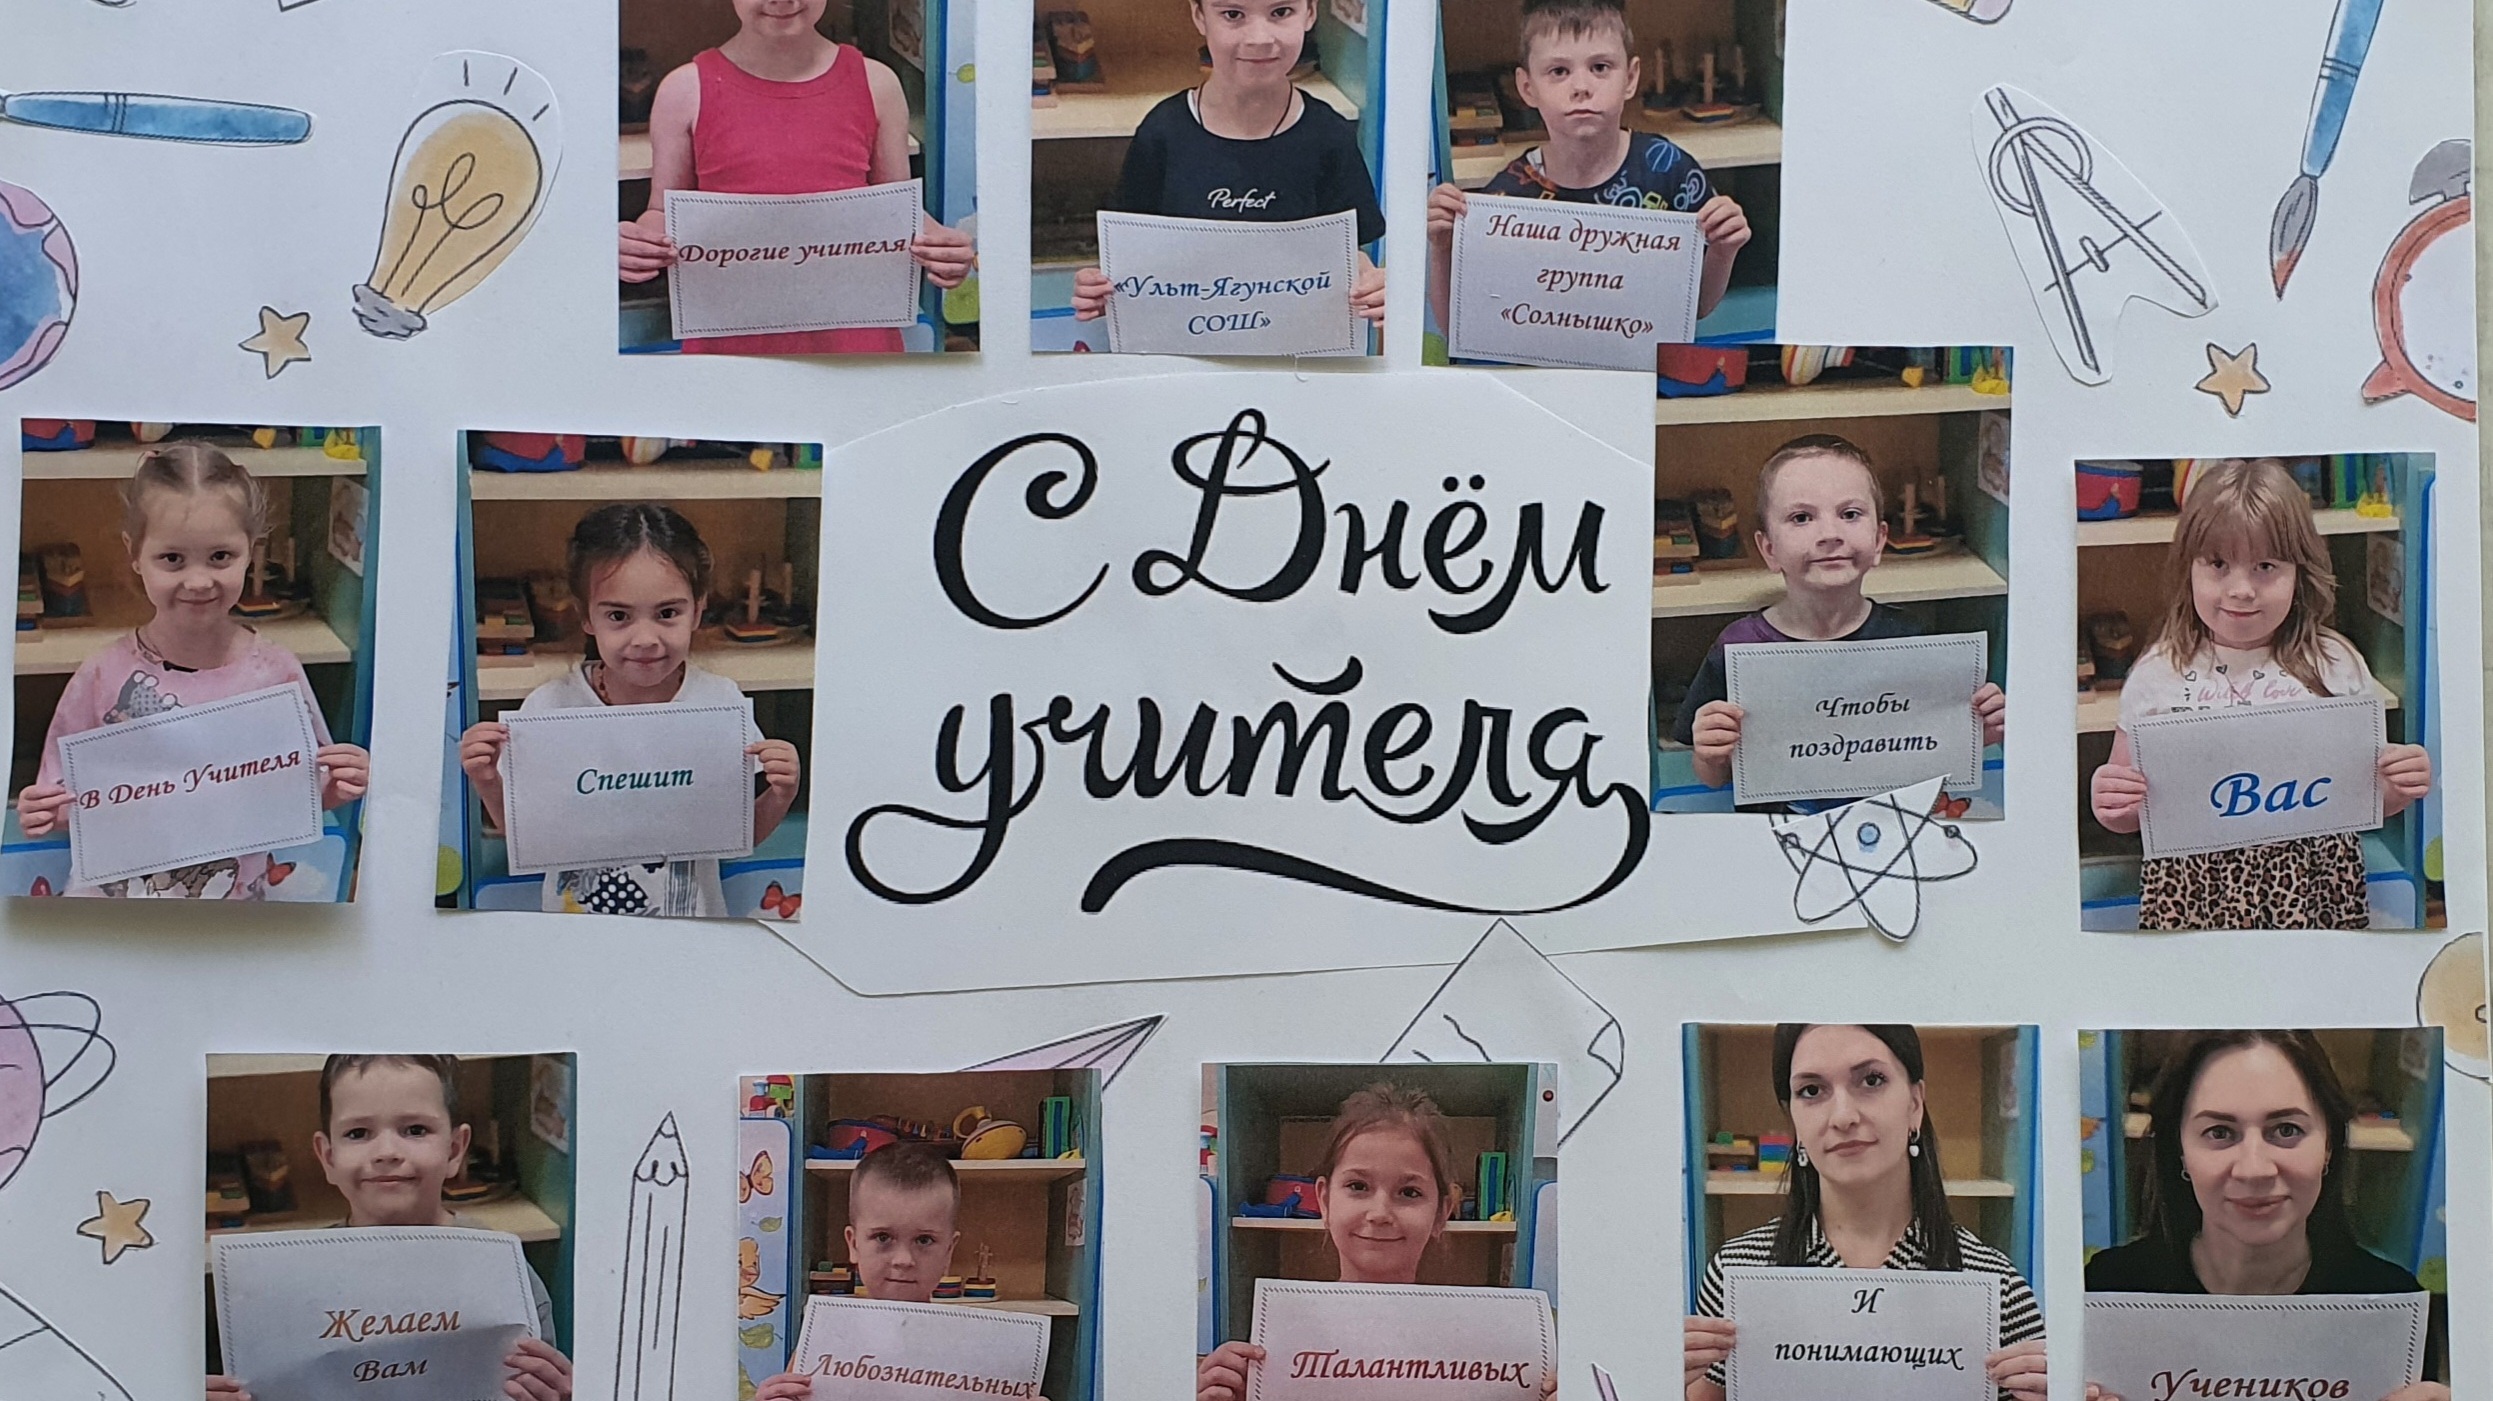 Дорогие учителя!
Perfect
«Ульт-Ягунской
СОШ»
Наша дружная
группа
«Солнышко»
В День Учителя
Спешит
С Днём
учителя
Чтобы
поздравить
Вас
Желаем
Вам
Любознательных
Талантливых
И
понимающих
Учеников